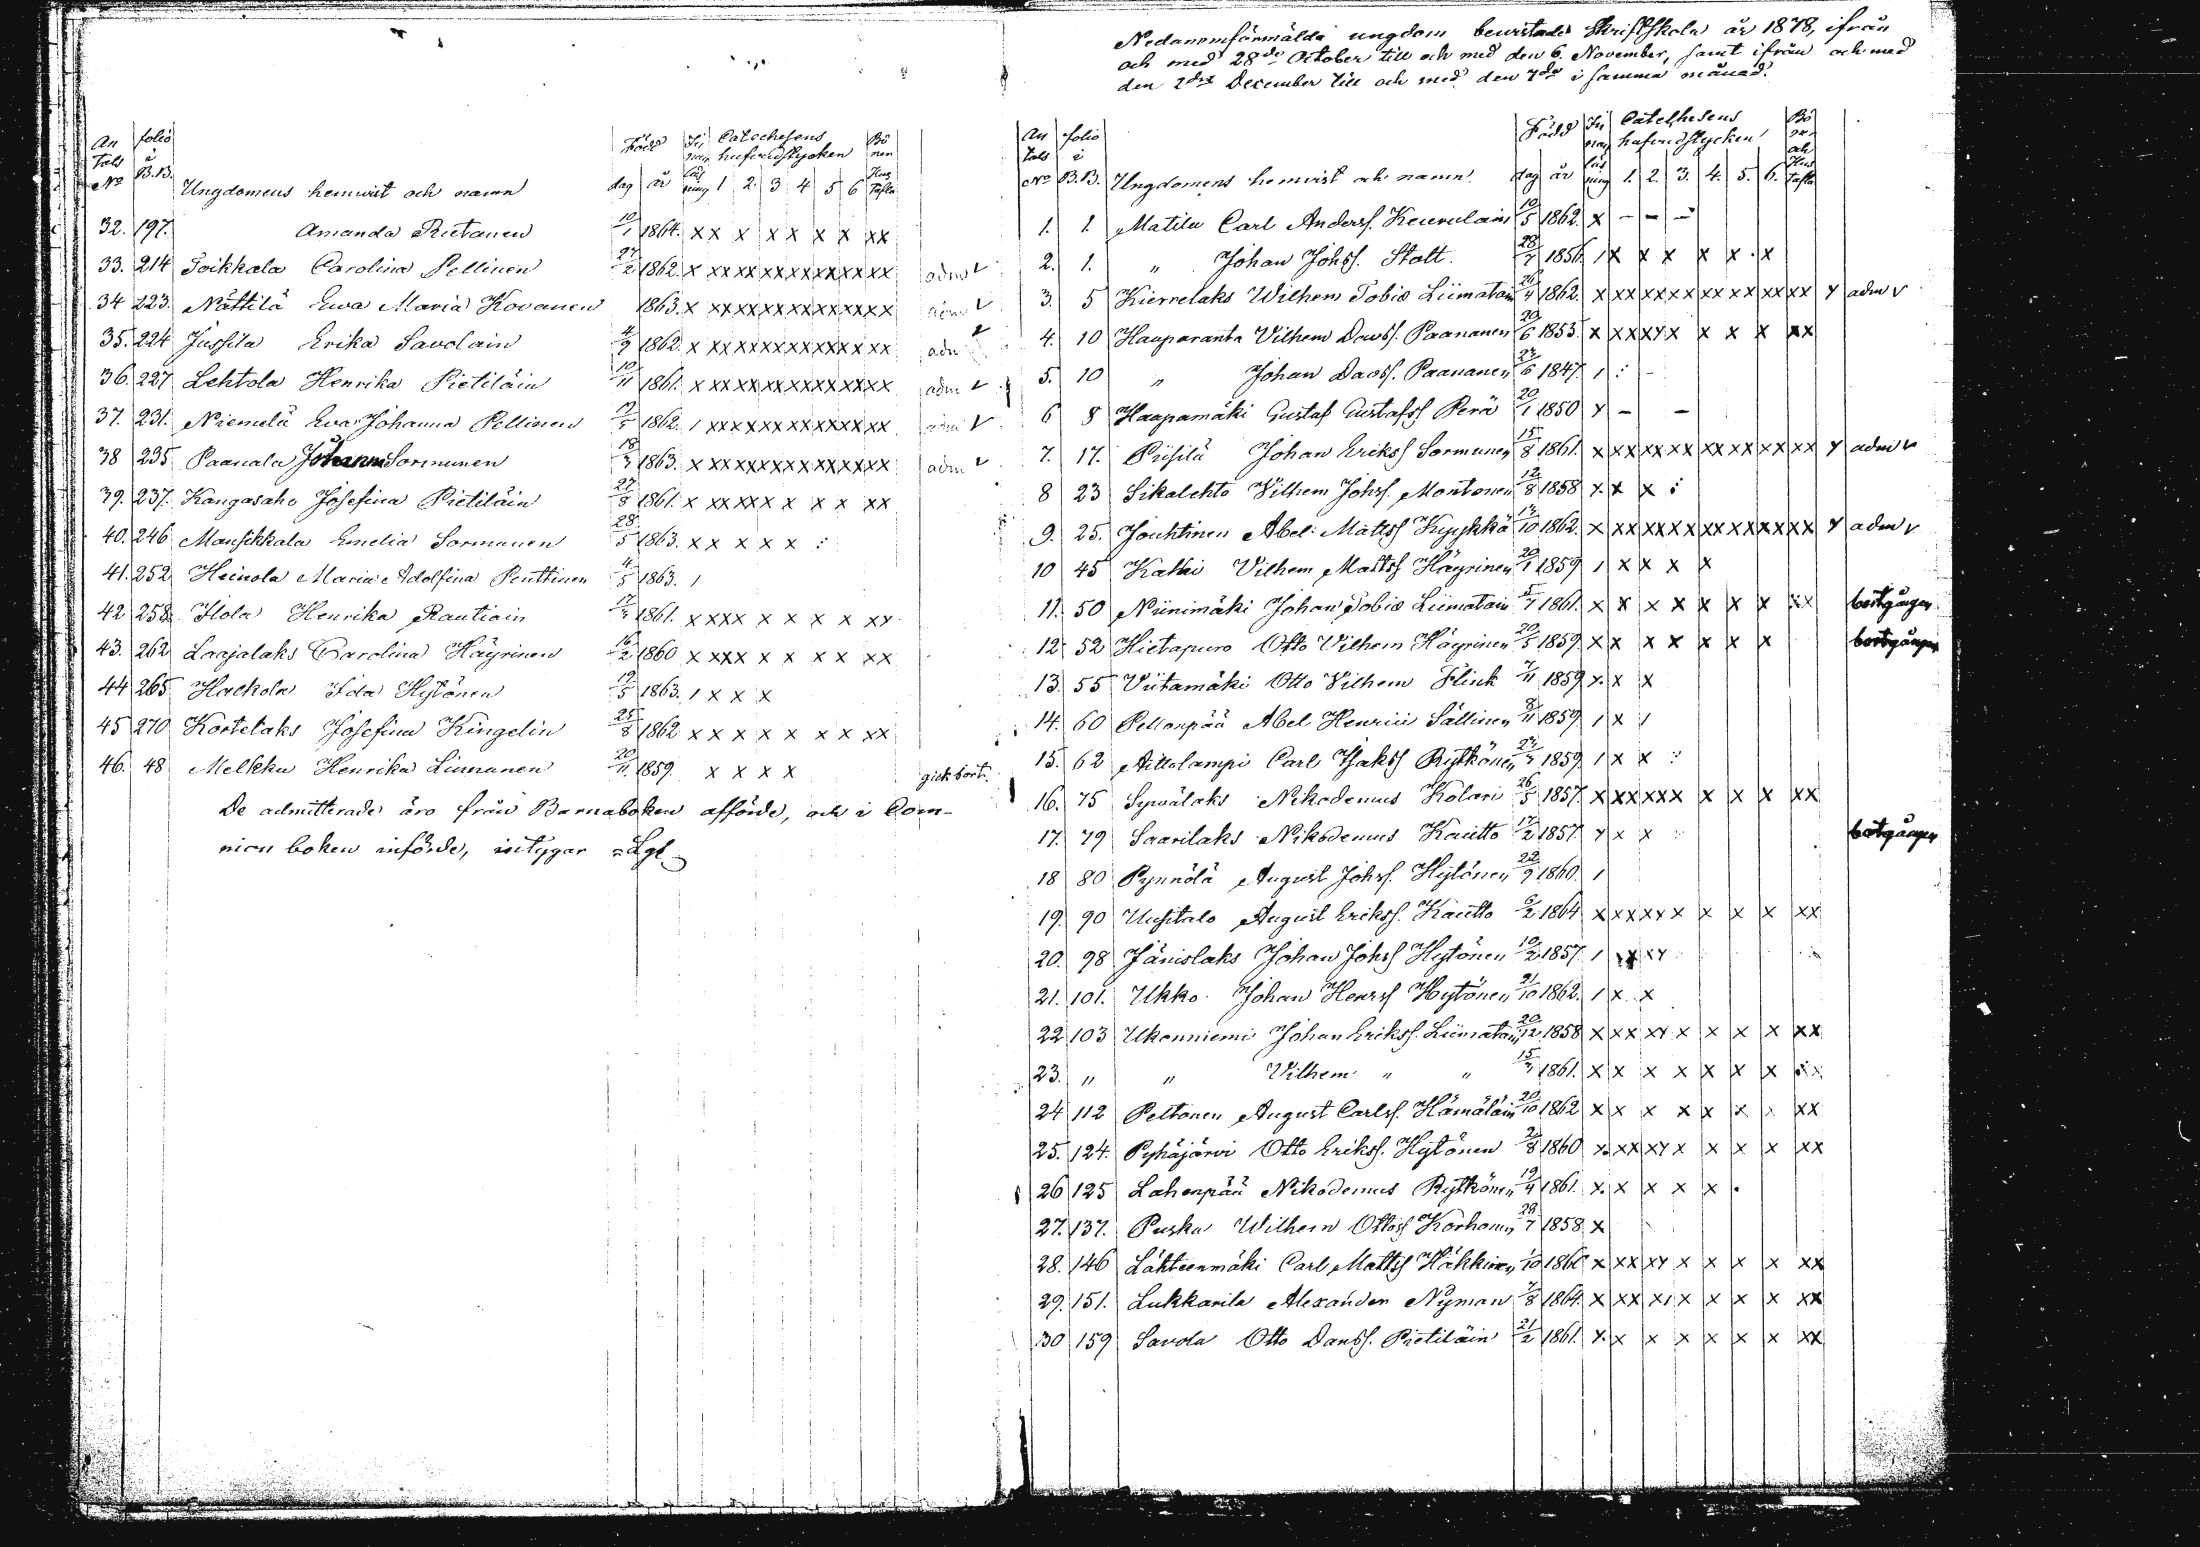 An folio
Tals i Född In Catechesens Bö
No B.B. nan hufvudstycken nen
Ungdomens hemvist och namn dag år läsning 1 2. 3 4 5 6 Hus Tafla
32. 197. Amanda Rutanen 10/1 1864. x x x x x x x x x
33. 214 Toikkala Carolina Pellinen 27/2 1862. x xx xx xx xx xx xx xx adm v
34 223. Nättilä Eva Maria Kovanen 1863. x xx xx xx xx xx xx xx adm v
35. 224 Jussila Erika Savolain 4/9 1862. x xx xx xx xx xx xx xx adm v
36. 227 Lehtola Henrika Pietiläin 10/11 1861. x xx xx xx xx xx xx xx adm v
37. 231. Niemelä Eva Johanna Pellinen 1862. 1 xx xx xx xx xx xx xx adm v
38 235 Paanala Johanna Sormunen 18/3 1863. x xx xx xx xx xx xx xx adm v
39. 237. Kangasaho Josefina Pietiläin 27/8 1861. x xx xx x x x x xx
40. 246 Mansikkala Emelia Sormunen 28/5 1863. x x x x x :
41. 252 Heinola Maria Adolfina Penttinen 4/5 1863. 1
42 258. Ilola Henrika Rautiain 1861. x xx x x x x x xx
43. 262 Laajalaks Carolina Häyrinen 16/2 1860 x x xx x x x x xx
44 265 Hackola Ida Hytönen 19/5 1863. 1 x x x
45 270 Kortelaks Josefina Kingelin 25/8 1862 x x x x x x x xx
46. 48 Melkku Henrika Linnanen 20/11 1859. x x x x gick bort.
De admitterade äro från Barnaboken afförde, och i Com-
nion boken införde, intygar Lgl
Nedannämnda ungdom bevistade Skriftskola år 1878, ifrån
och med 28de October till och med den 6 November, samt ifrån och med
den 2dra December till och med den 7de i samma månad.
An folio Född In Catechesens Bö
Tals i nan hufvudstycken nen och
No B.B. Ungdomens hemvist och namn. dag år läsning 1. 2. 3. 4. 5. 6. Hus Tafla
1. 1. Matila Carl Anderss. Keurulain 10/5 1862. x – – –
2. 1. " Johan Johss. Stolt 1856. 1 x x x x x . x
3. 5 Kierrelaks Wilhem Tobias Liimatain 26/4 1862. x xx xx xx xx xx xx xx y adm v
4. 10 Hauparanta Vilhem Davss. Paananen 20/6 1853. x xx xx x x x x xx
5. 10 " Johan Davss. Paananen 27/6 1847. 1 : –
6 8 Haapamäki Gustaf Gustafss Perä 20/1 1850 y – –
7. 17. Piisilä Johan Erikss Sormunen 15/8 1861. x xx xx xx xx xx xx xx y adm v
8 23 Sikalehto Vilhem Johss. Montonen 12/8 1858 x. x x :
9. 25. Jouhtinen Abel Mattss Kyykkä 13/10 1862. x xx xx xx xx xx xx xx y adm v
10 45 Kathi Vilhem Mattss Häyrinen 1859 1 x x x x
11. 50 Niinimäki Johan Tobias Liimatain 1861. x x x x x x x xx bortgången
12 52 Hietapuro Otto Vilhem Häyrinen 20/5 1859. x x x x x x x bortgången
13. 55 Viitamäki Otto Vilhem Flink 7/11 1859 x. x x
14. 60 Pellonpää Abel Henriss Sällinen 8/11 1859 1 x 1
15. 62 Aittolampi Carl Isakss Rytkönen 1859 1 x x :
16. 75 Syvälaks Nikodemus Kolari 26/5 1857. x xx xx x x x x xx
17. 79 Saarilaks Nikodemus Kautto 17/2 1857. y x x bortgången
18 80 Pynnölä August Johss. Hytönen 22/9 1860. 1
19. 90 Uusitalo August Erikss. Kautto 1864 x xx xy x x x x xx
20. 98 Jänislaks Johan Johss Hytönen 1857. 1 x xy
21. 101. Ukko Johan Henrss Hytönen 21/10 1862. 1 x x
22 103 Ukonniemi Johan Erikss. Liimatain 20/12 1858 x xx xy x x x x xx
23. " " Vilhem " " 1861. x x x x x x x xx
24 112 Peltonen August Carlss. Hämäläin 20/10 1862 x x x x x x x xx
25. 124. Pyhäjärvi Otto Erikss. Hytönen 2/8 1860 x. xx xy x x x x xx
26 125 Lahenpää Nikodemus Rytkönen 19/4 1861. x. x x x x .
27. 137. Puska Wilhem Ottoss Korhonen 29/7 1858 x
28. 146 Lähteenmäki Carl Mattss Häkkinen 1/10 1860 x xx xy x x x x xx
29. 151. Lukkarila Alexander Nyman 7/8 1864. x xx x1 x x x x xx
30 159 Savola Otto Davss. Pietiläin 21/2 1861. x. x x x x x x xx